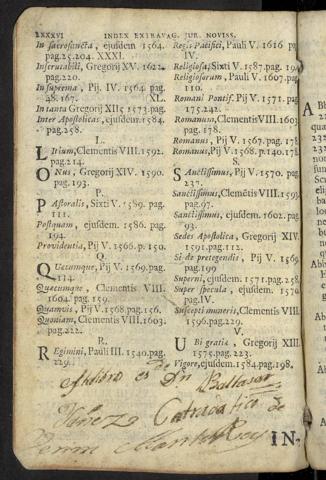 lxxxvi INDEX EXTRAVAG. JUR. NOVISS.
In sacrosancta, ejusdem 1564.
pag.25.204. XXXI.
Inscrutabili, Gregorij XV. 1622.
pag.220.
In suprema, Pij. IV. 1564. pag.
28.167. XL.
In tanta Gregorij XIIJ 1573.pag.
Inter Apostolicas, ejusdem.1584.
pag.258.
L.
Litium, Clementis VIII. 1592.
pag.214.
O
ONus, Gregorij XIV. 1590.
pag.193.
P.
PAstoralis, Sixti V. 1589. pag.
111.
Postquam, ejusdem 1586. pag.
194.
Providentia, Pij V. 1566. p. 150.
Q.
QUæcumque, Pij V. 1569. pag.
114.
Quæcumque, Clementis VIII.
1604. pag. 159.
Quamvis, Pij V. 1568. pag. 156.
Quoniam, Clementis VIII. 1603.
pag.222.
R.
REgimini, Pauli III. 1540. pag.
229.
Regis Pacifici, Pauli V. 1616
IV.
Religiosa, Sixti V. 1587. pag. 194
Religiosorum, Pauli V. 1607. pag.
110.
Romani Pontif. Pij V. 1571. pag.
175.242.
Romanum, Clementis VIII. 1603.
pag. 178.
Romanus, Pij V. 1567. pag. 178
Romanus, Pij V. 1568. p. 140. 178
S.
SAnctissimus, Pij V. 1570. pag.
237.
Sanctissimus, Clemētis VIII. 1593
pag.97.
Sanctissimus, ejusdem, 1602. pag.
93.
Sedes Apostolica, Gregorij XIV.
1591. pag.113.
Si de protegendis, Pij V. 1569
pag.199
Superni, ejusdem, 1571. pag.258
Super specula, ejusdem. 1570
pag.IV.
Suscepti muneris, Clementis VIII
1596. pag.229.
V.
UBi gratiæ, Gregorij XIII.
1575. pag.223.
Vigore, ejusdem, 1584. pag. 198.
es de Dn Baltasar
Catradatico de
IN-